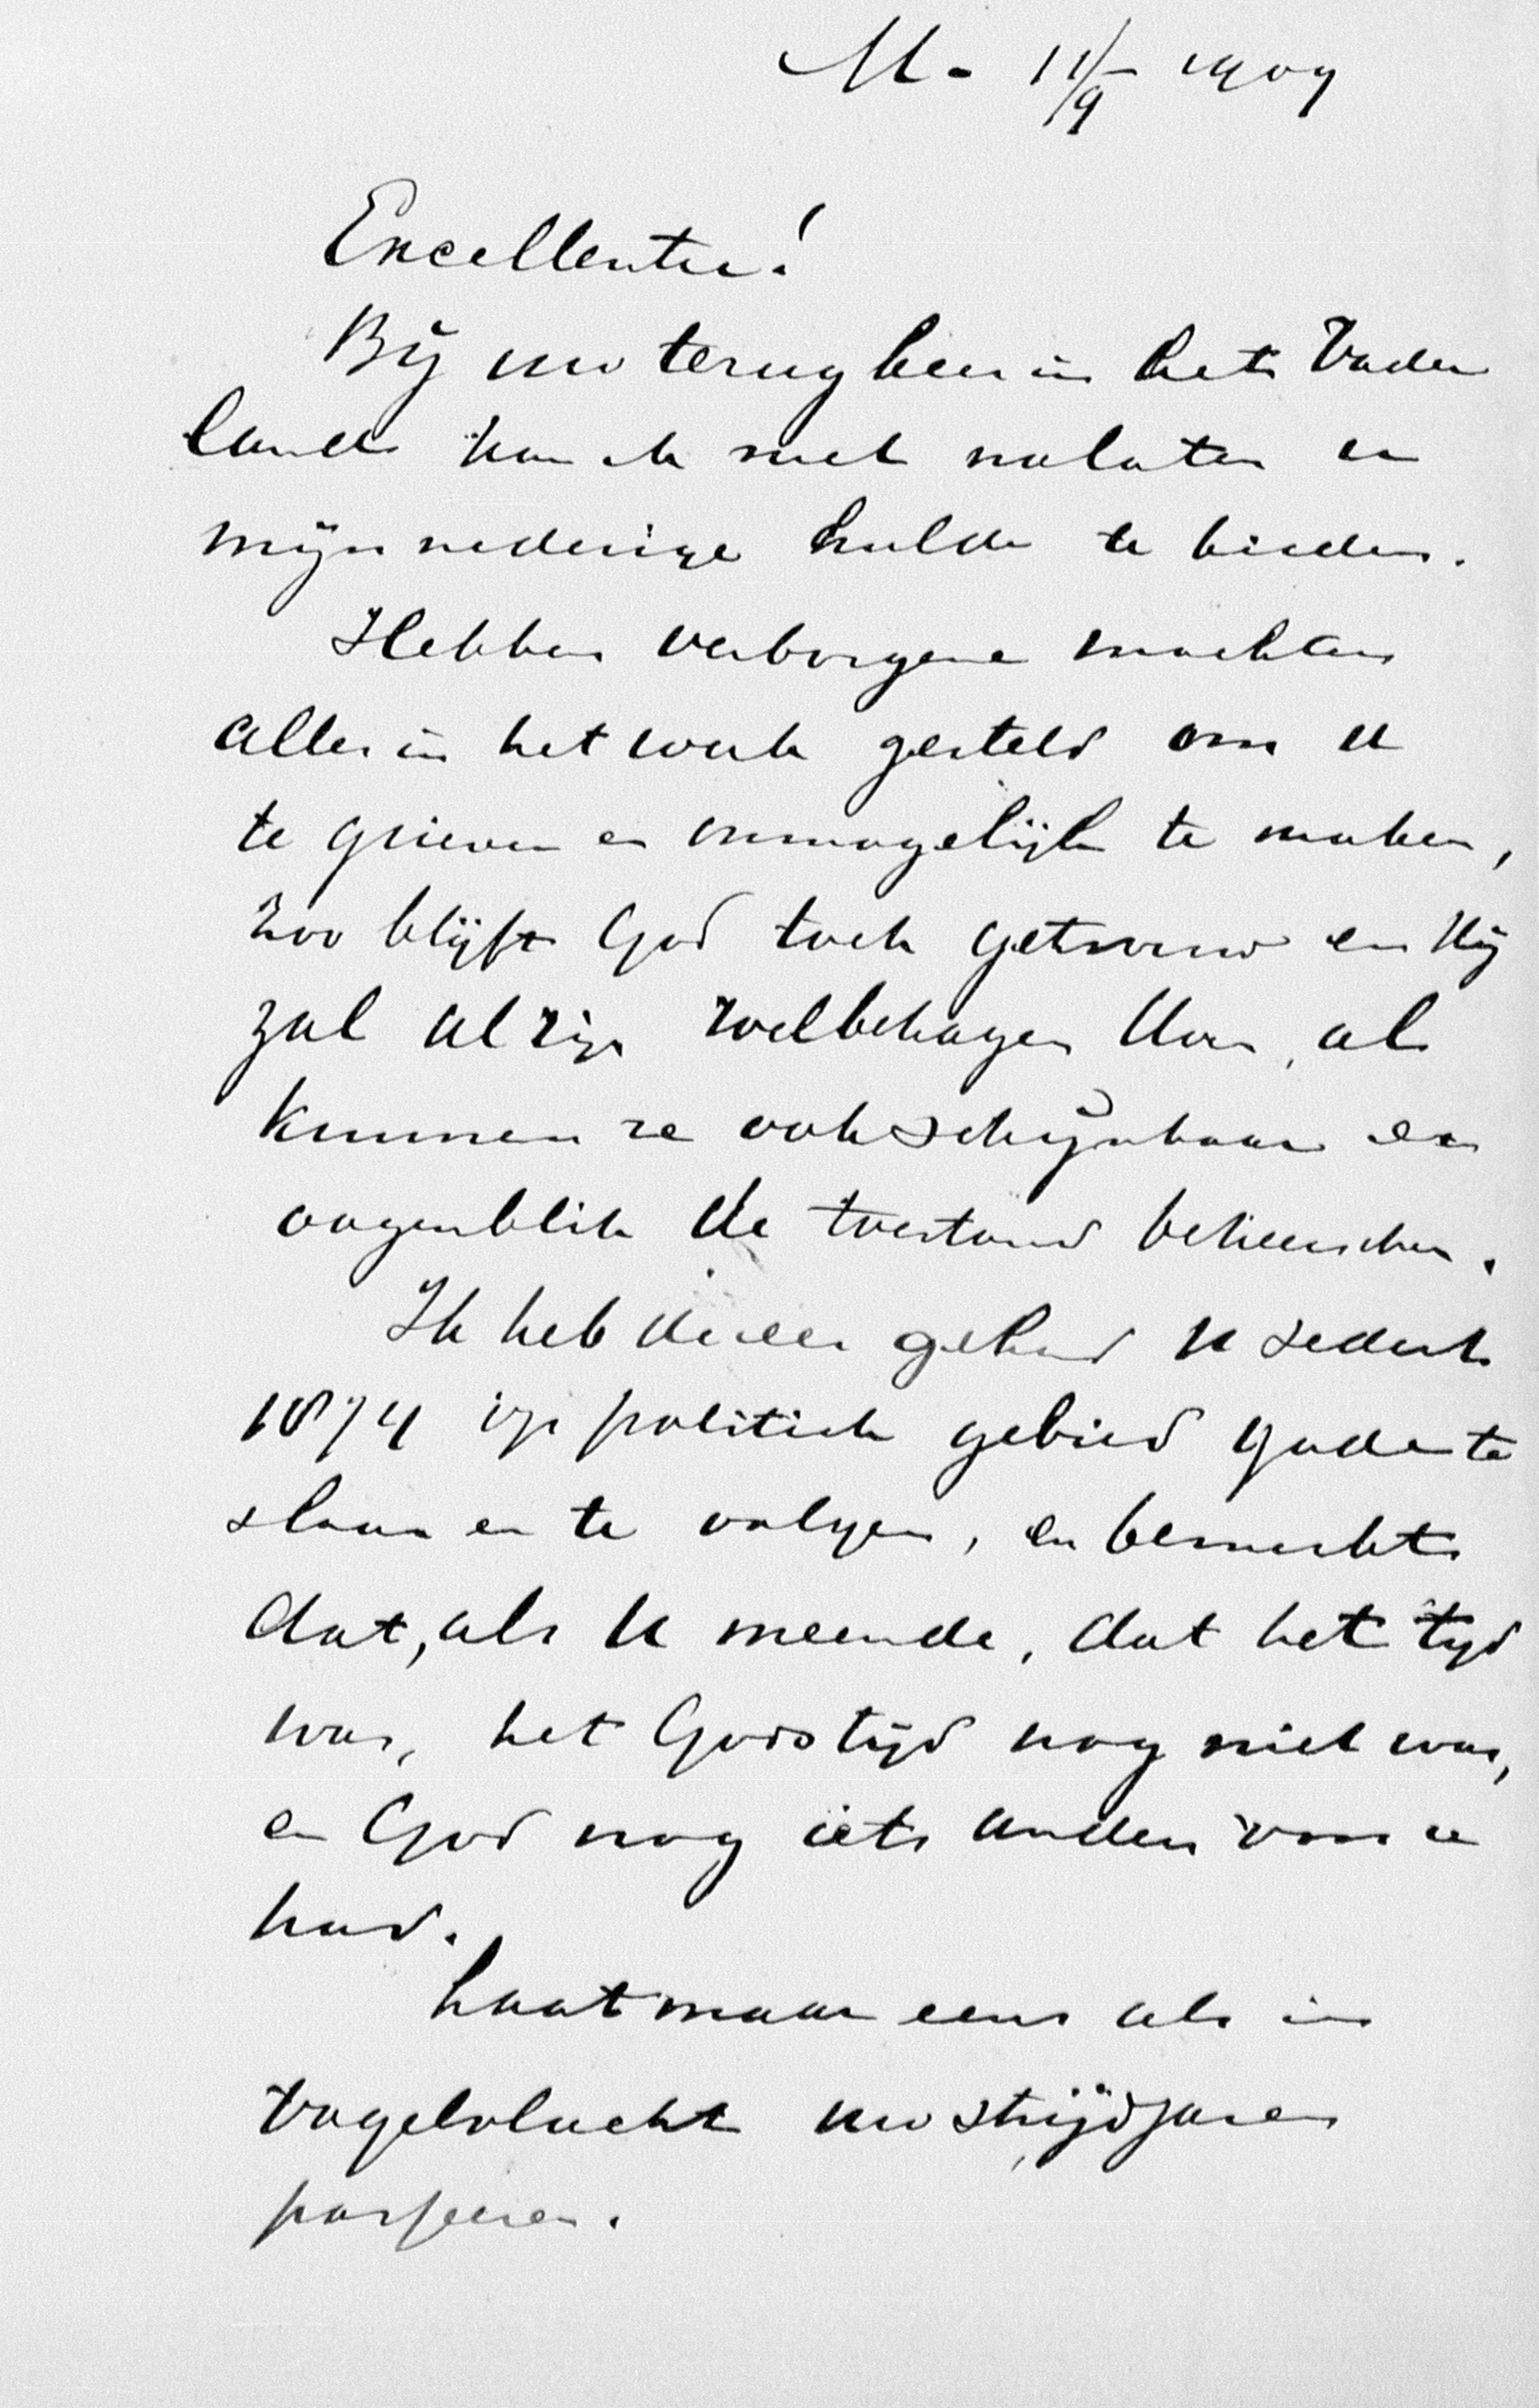 M. 11/9 1909
Excellentie!
Bij uw terugkeer in het Vader
land kan ik niet nalaten u
mijn nederige hulde te bieden.
Hebben verborgene machten
alles in het werk gesteld om u
te grieven en onmogelijk te maken,
zoo blijft God toch getrouw en Hij
zal al zijn welbehagen doen, al
kunnen ze ook schijnbaar een
oogenblik de toestand beheerschen.
Ik heb de eer gehad u sedert
1874 op politiek gebied gade te
slaan en te volgen, en bemerkte
dat, als u meende, dat het tijd
was, het Gods tijd nog niet was,
en God nog iets anders voor u
had.
Laat maar eens als in
vogelvlucht uw strijdjaren
passeeren.